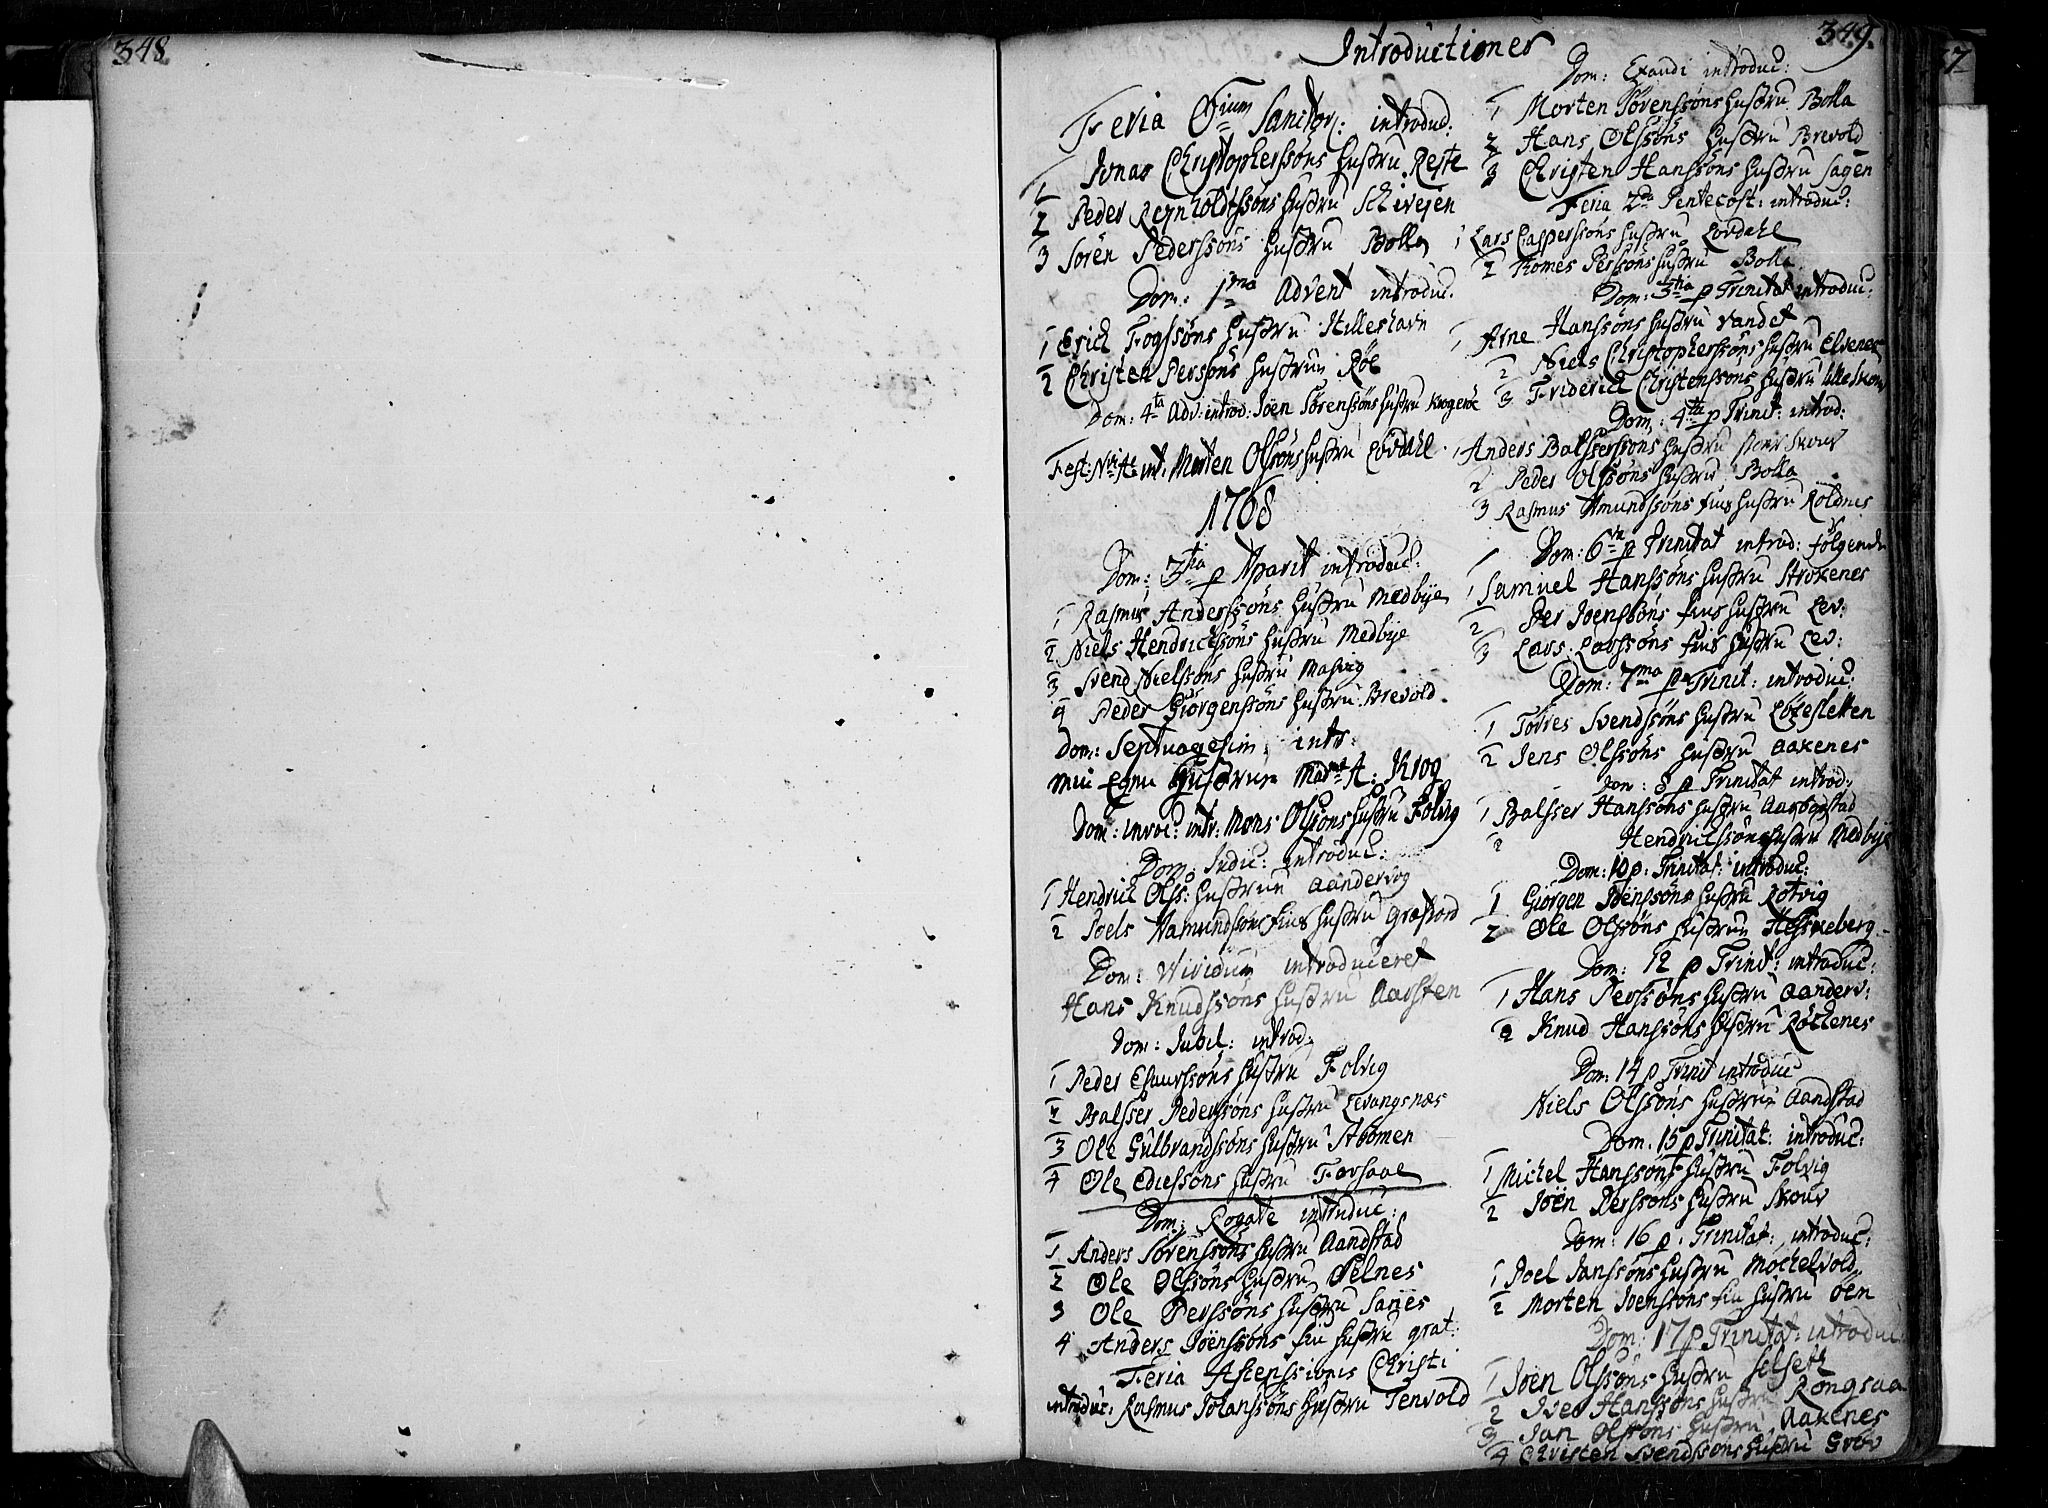 348.
349.
Introductiones
Feria O᷉ium Sanctor: introduc:
1 Jonas Christopherssöns Hustru Reste
2 Peder Reynholdtssöns Hustru
3 Sören Pederssöns Hustru Bolla
Dom: 1ma Advent introduc.
1 Erich Fogssöns Hustru Hilleshavn
2 Christen Perssöns Hustrue Röe
Dom: 4ta Adv: introd: Joen Sörenssöns Hustru Krogeröe
Fest: int. Morten Olssöns Hustru Lövdahl.
1768
Dom: 3tia p Aparit introduc:
1 Rasmus Anderssöns Hustru Medbye
2 Niels Hendrichssöns Hustru Medbye
3 Svend Nielssöns Hustru Masvig
4 Peder Giörgenssöns Hustru Brevold.
Dom: Septuagesim: intr:
min Egen Hustrue Madme A: Krog
Dom: invoc: intr: Mons Olssöns Hustru Folvig
Dom: Judic: introduc:
1 Hendrich Olss: Hustrue Aandervog
2 Poels Aamundssöns Hustru Gratford
Dom: introduceret
Hans Knudssöns Hustru Aarsten
Dom: Jubil: introd:
1 Peder Hustru Folvig
2 Balsser Pederssöns Hustru Levangsnæs
3 Ole Gulbrandssöns Hustru
4 Ole Ediessöns Hustru
Dom: Rogate introduc:
1 Anders Sörenssöns Hustru Aandstad
2 Ole Olssöns Hustru Selnes
3 Ole Perssöns Hustru
4 Anders Joenssöns fin Hustru grat:
Feria Asenssionis Christi
introduc: Rasmus Johanssöns Hustru Tenvold
Dom: Exaudi introduc:
1 Morten Sörenssöns Hustru Bolla
2 Hans Olssöns Hustru Brevold
3 Christen Hanssöns Hustru Sagen
Feria 2da Pentecost: introduc:
1 Lars Casperssöns Hustru Lövdahl
2 Tomes Perssöns Hustru Bolla
Dom: 3tia p Trinitat introduc:
1 Arne Hanssöns Hustru Vandet
2 Niels Christopherssöns Hustru Elvenes
3 Friderich Christenssöns Hustru
Dom: 4ta p Trinit: introd:
1 Anders Balsserssöns Hustru
2 Peder Olssöns Hustru Bolla
3 Rasmus Amundssöns fins Hustru Röldnes
Dom: 6ta p Trinitat introd: fölgende
1 Samuel Hanssöns Hustru Stroxenes
2 Per Joenssöns fins Hustru Lev:
3 Lars Larssöns fins Hustru Lev:
Dom: 7ma p Trinit: introduc:
1 Torres Svendssöns Hustru
2 Jens Olssöns Hustru Aakenes
Dom: 8 p Trinitat introd:
1 Balsser Hanssöns Hustru
2 Hendrichssöns Hustru Medbye
Dom: 10 p: Trinitat: introduc:
1 Giörgen Joenssöns Hustru Rotvig
2 Ole Olssöns Hustrue Hessneberg
Dom: 12 p Trinit: introduc:
1 Hans Perssöns Hustru Aanderv:
2 Knud Hanssöns Hustru Röchenes
Dom: 14 p Trinit introduc
Niels Olssöns Hustrue Aandstad
Dom: 15 p Trinitat: introduc:
1 Michel Hanssöns Hustru Folvig
2 Joen Perssöns Hustru Skouv
Dom: 16 p. Trinitat: introduc:
1 Poel Janssöns Hustru
2 Morten Joenssöns fin Hustru Öen
Dom: 17 p Trinitat: introduc
1 Joen Olssöns Hustru Selseth
2 Iver Hanssöns Hustru
3 Jan Olssöns Hustru Aakenes
4 Christen Svendssöns Hustru Gröv